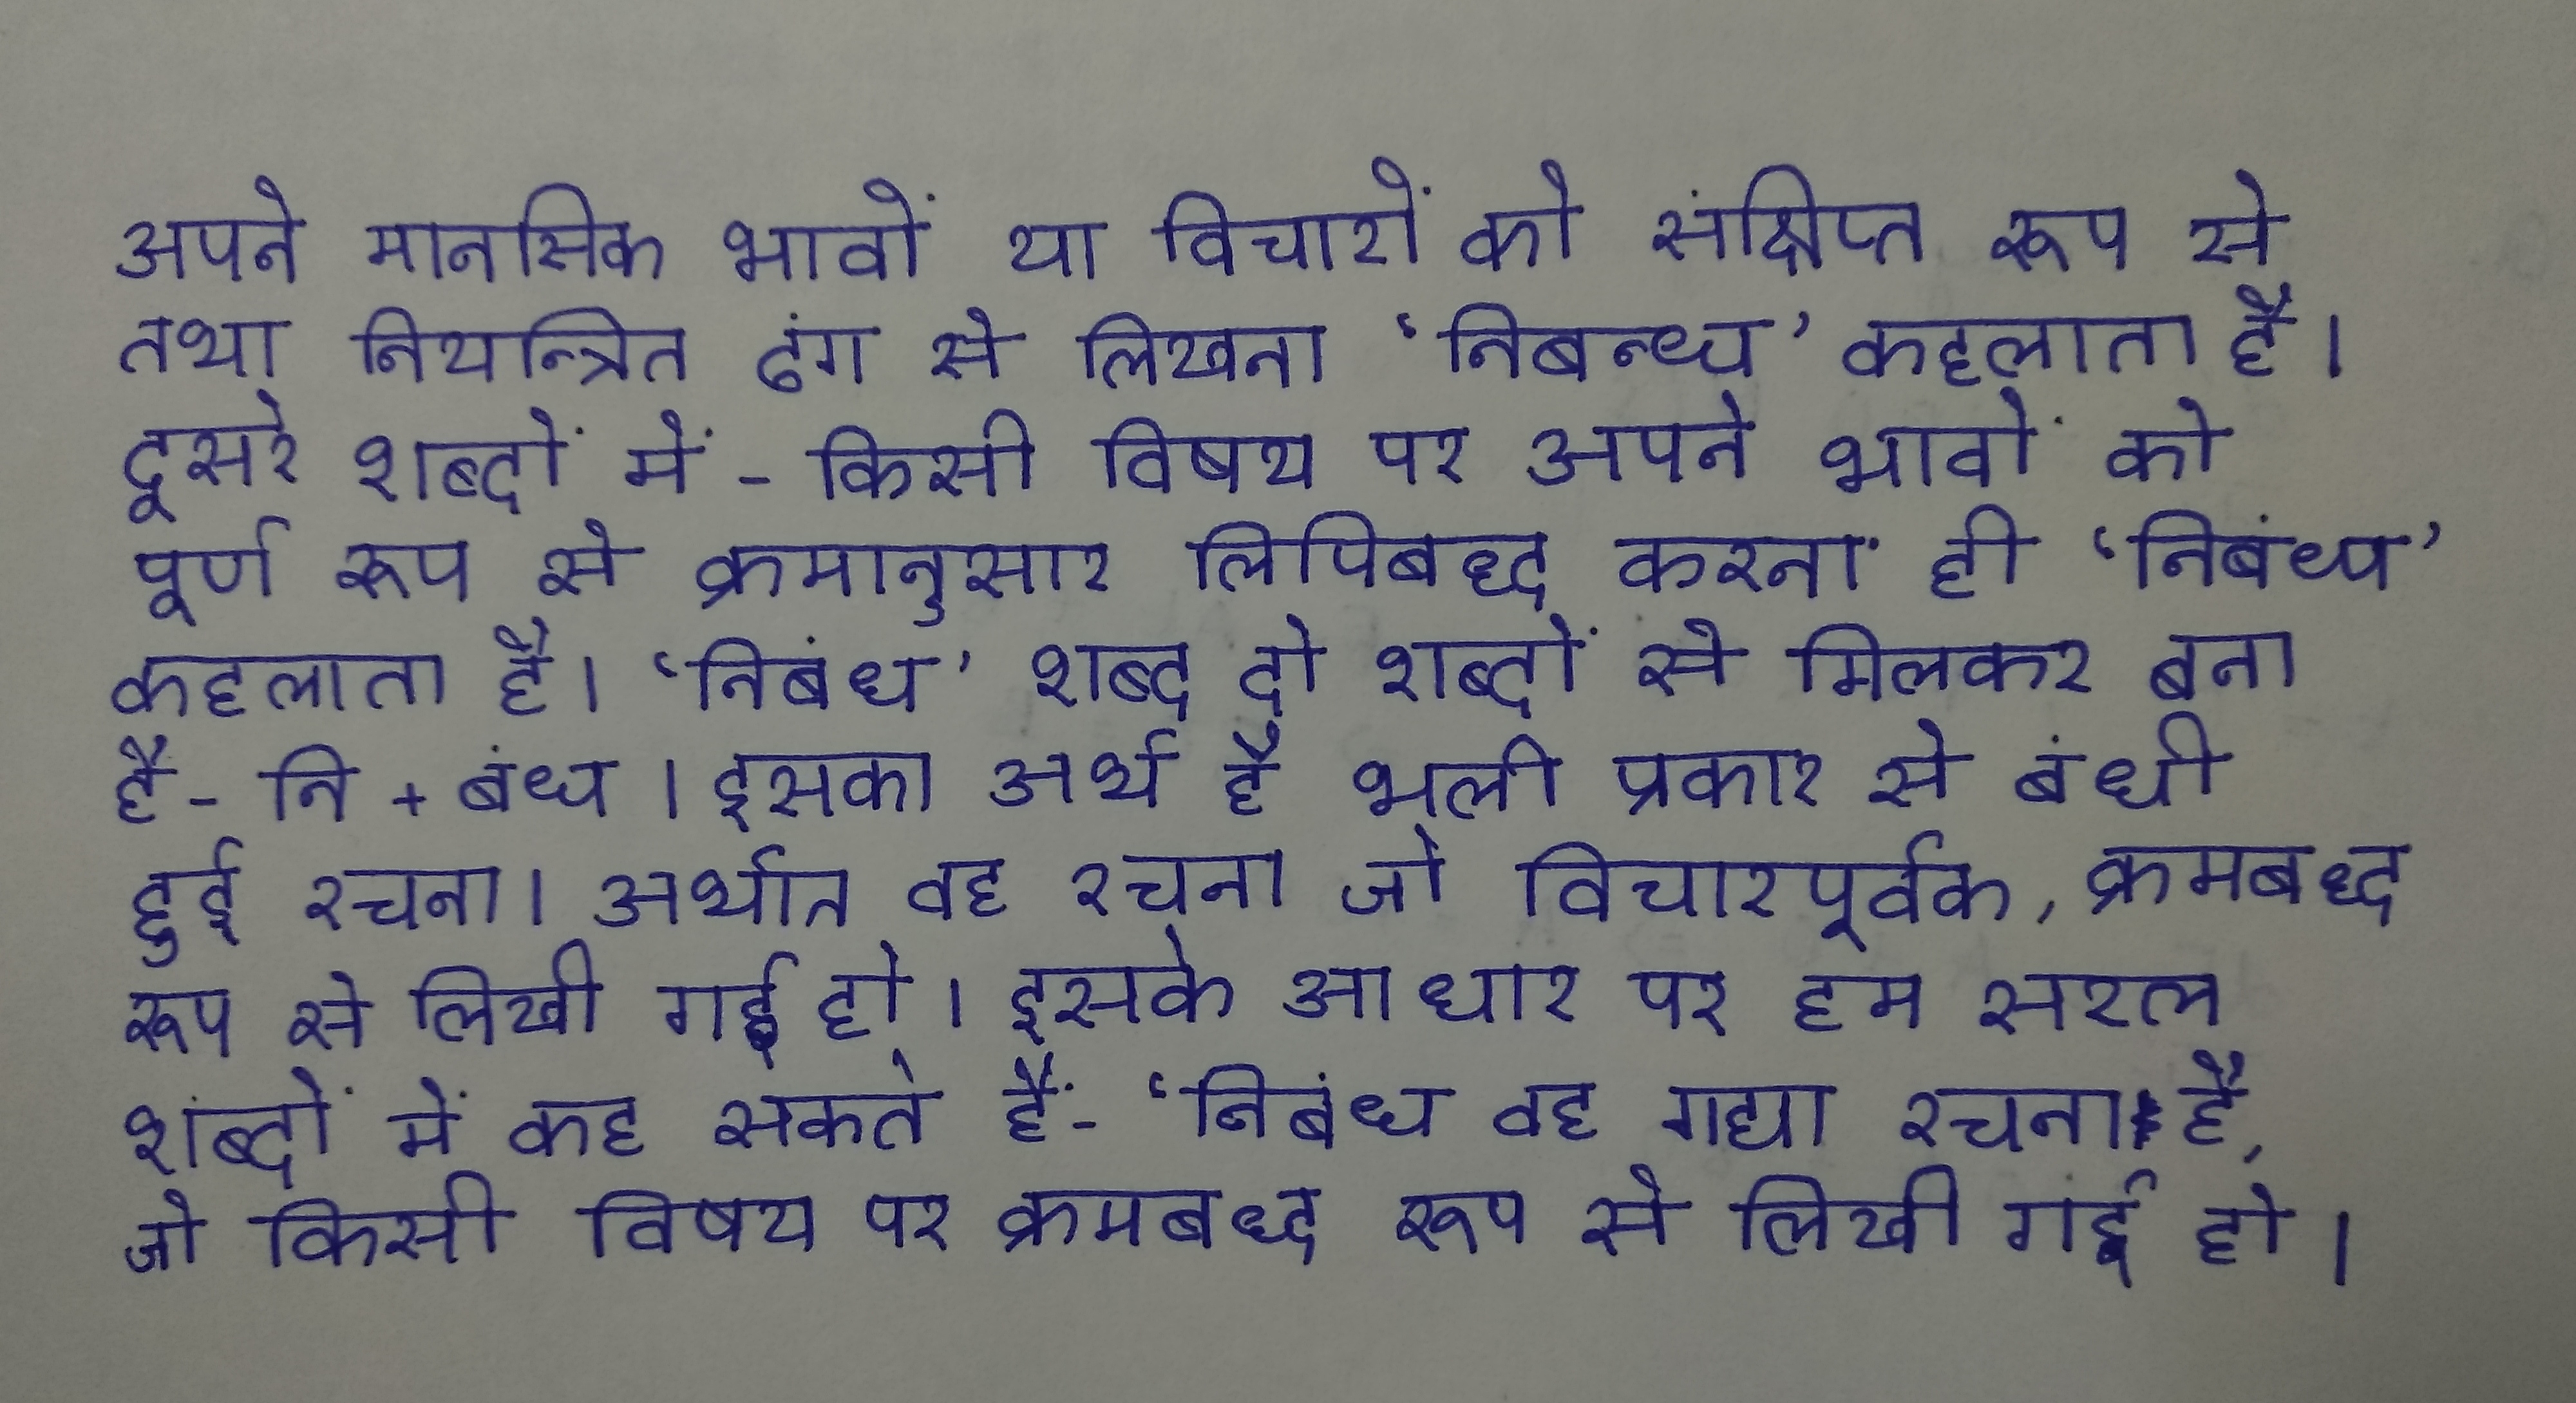 अपने मानसिक भावों या विचारों को संक्षिप्त रूप से
तथा नियन्त्रित ढंग से लिखना ‘निबन्ध’ कहलाता है।
दूसरे शब्दों में - किसी विषय पर अपने भावों को
पूर्ण रूप से क्रमानुसार लिपिबद्ध करना ही ‘निबंध’
कहलाता है। ‘निबंध’ शब्द दो शब्दों से मिलकर बना
है - नि + बंध । इसका अर्थ है भली प्रकार से बंधी
हुई रचना। अर्थात वह रचना जो विचारपूर्वक, क्रमबद्ध
रूप से लिखी गई हो। इसके आधार पर हम सरल
शब्दों में कह सकते हैं - ‘निबंध वह गद्या रचना है,
जो किसी विषय पर क्रमबद्ध रूप से लिखी गई हो।